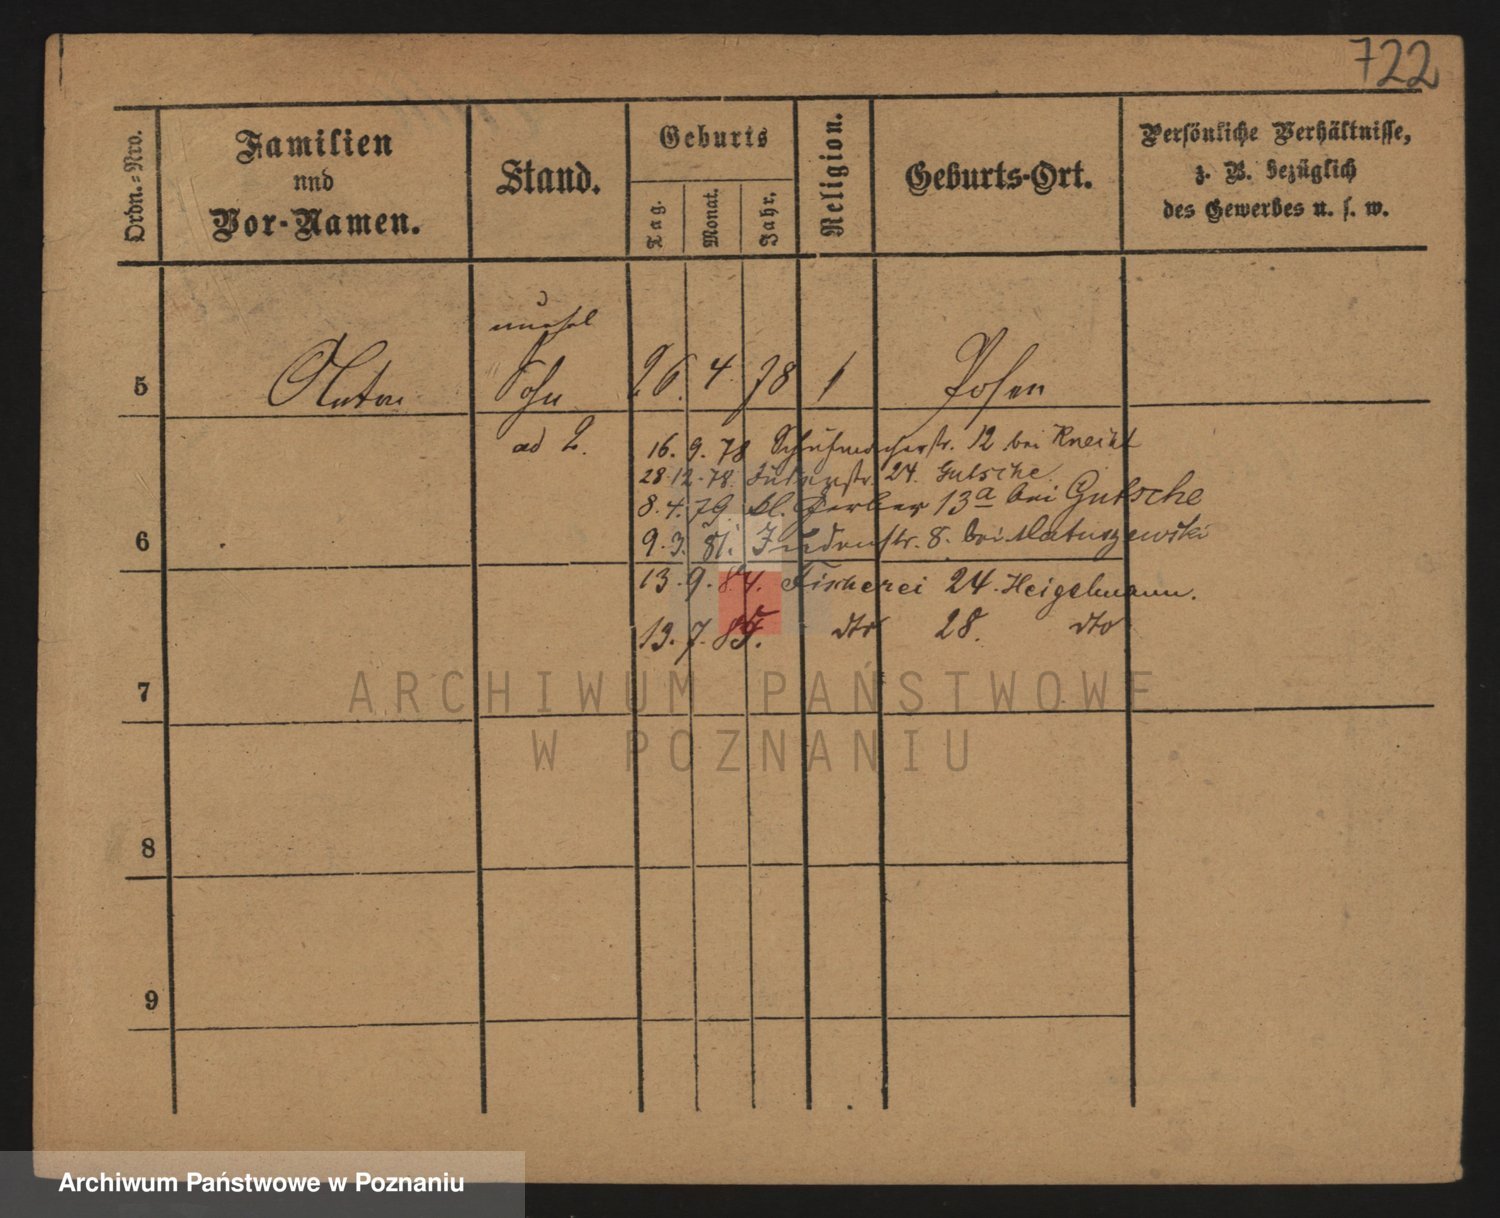 722
Ordn.=Nro.
Familien
und
Vor-Namen.
Stand.
Geburts
Tag.
Monat.
Jahr.
Religion.
Geburts-Ort.
Persönliche Verhältnisse,
z. B. bezüglich
des Gewerbes u. s. w.
unehel
5 Anton Sohn 26. 4. 78 1 Posen
ad 2. 16. 9. 78 Schuhmacherstr. 12 bei Kneisel
28.12.78. Judenstr. 24. Gutsche
8. 4. 79 kl. Gerber 13a bei Gutsche
6 9. 3. 81. Judenstr. 8. bei Matuszewski
13. 9. 84. Fischerei 24. Heigelmann.
13. 7. 85. dto 28. dto
7
ARCHIWUM PAŃSTWOWE
W POZNANIU
8
9
Archiwum Państwowe w Poznaniu